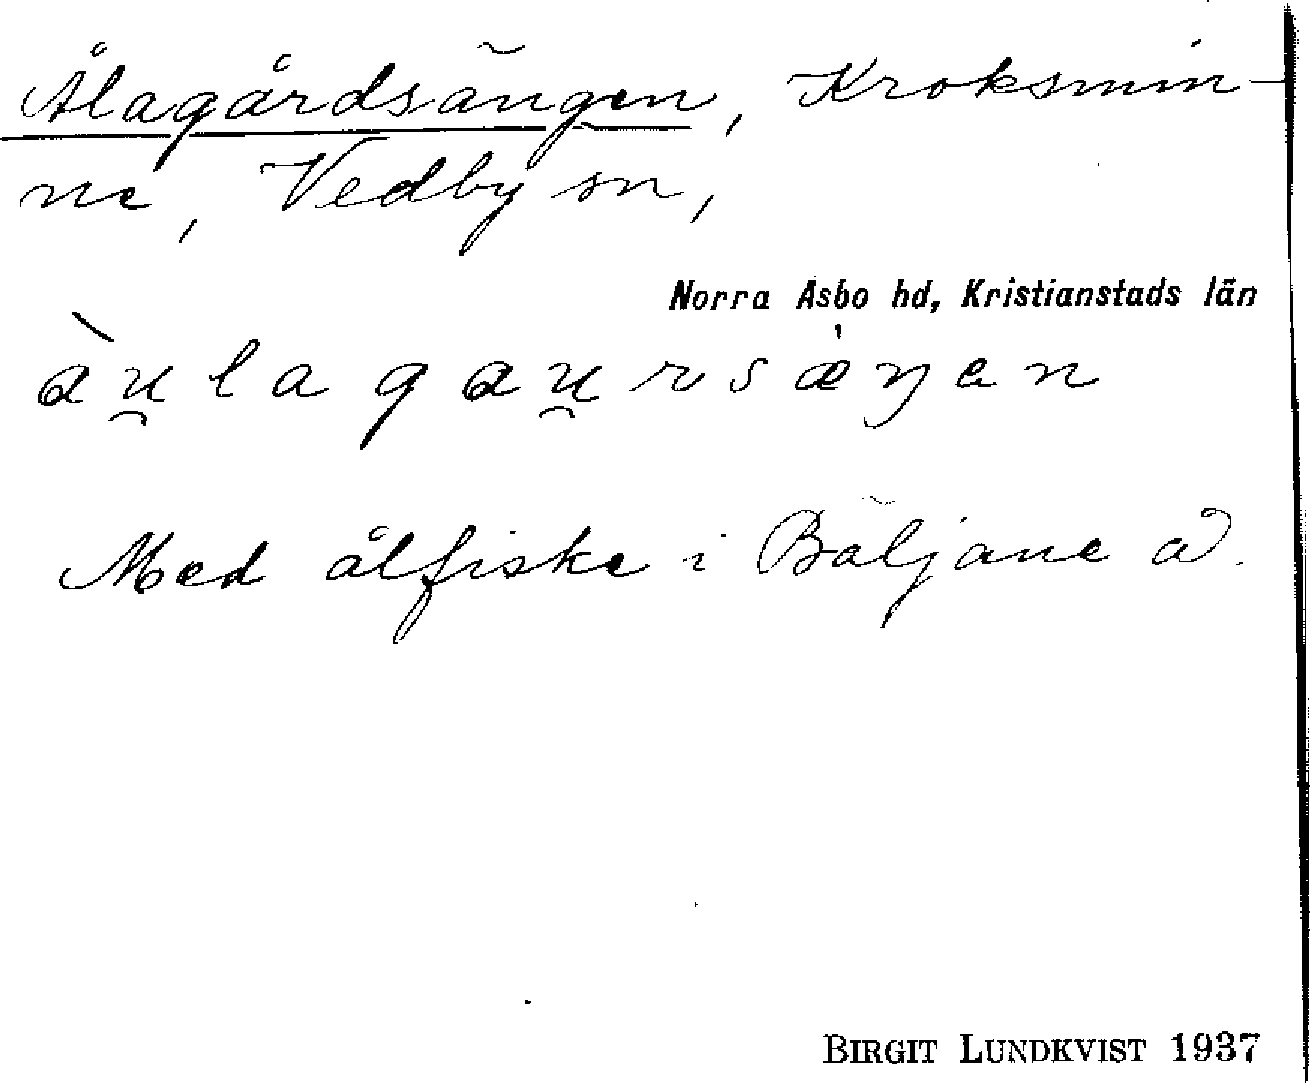 Ålagårdsängen, Kroksmin-
ne, Vedby sn,
Norra Åsbo hd, Kristianstads län
àu̯lagau̯rsæ̍ŋen
Med ålfiske i Bäljane å.
BIRGIT LUNDKVIST 1937